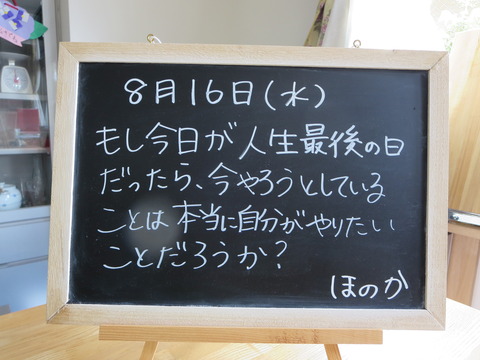 8月16日(水)
もし今日が人生最後の日
だったら、今やろうとしている
ことは本当に自分がやりたい
ことだろうか?
ほのか